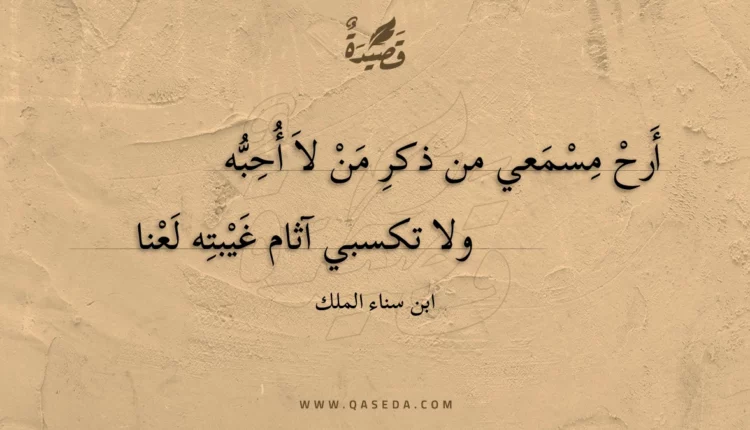 قَصِيدَةٌ
أَرحْ مِسْمَعي من ذكرِ مَنْ لاَ أُحِبُّه
ولا تكسبي آثام غَيْبتِه لَعْنا
ابن سناء الملك
WWW.QASEDA.COM